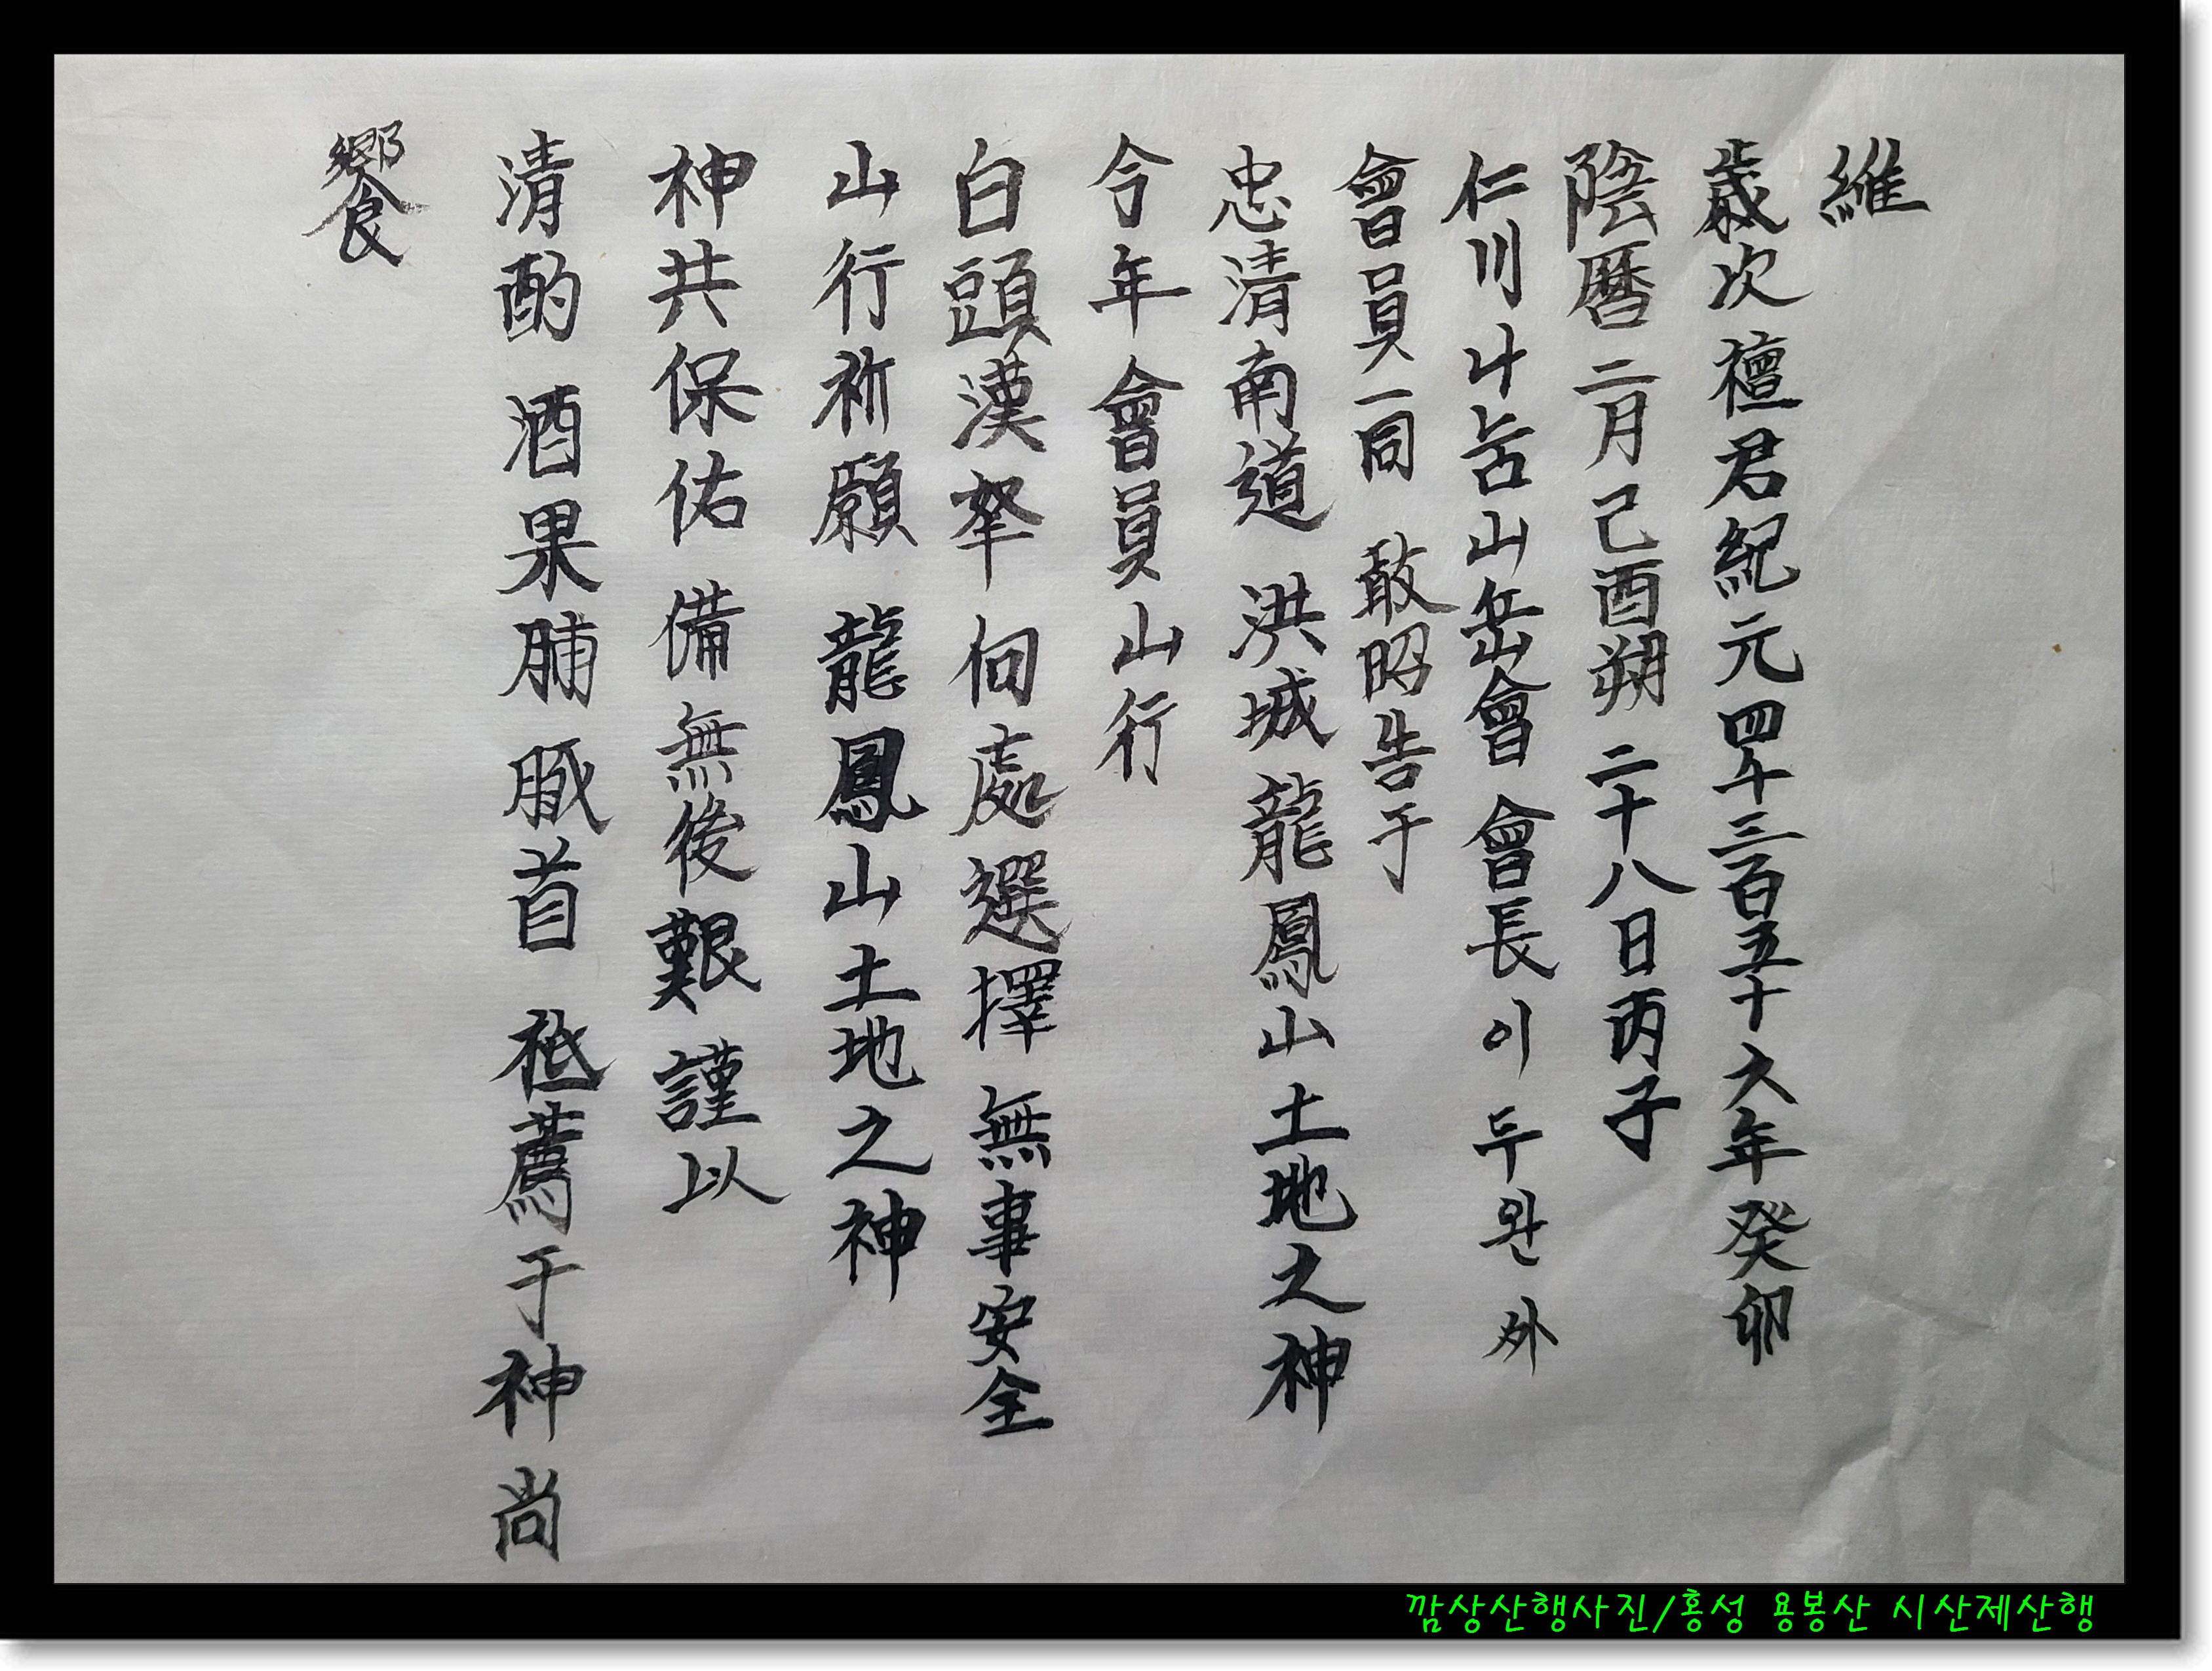 維
歲次檀君紀元四千三百五十六年癸卯
陰曆二月己酉朔 二十八日丙子
仁川나눔山岳會 會長 이 두 완 外
會員一同 敢昭告于
忠清南道 洪城 龍鳳山土地之神
今年會員山行
白頭漢拏 何處選擇 無事安全
山行祈願 龍鳳山土地之神
神共保佑 備無後艱 謹以
清酌 酒果脯 首 祗薦于神 尚
饗
깜상산행사진/홍성 용봉산 시산제산행